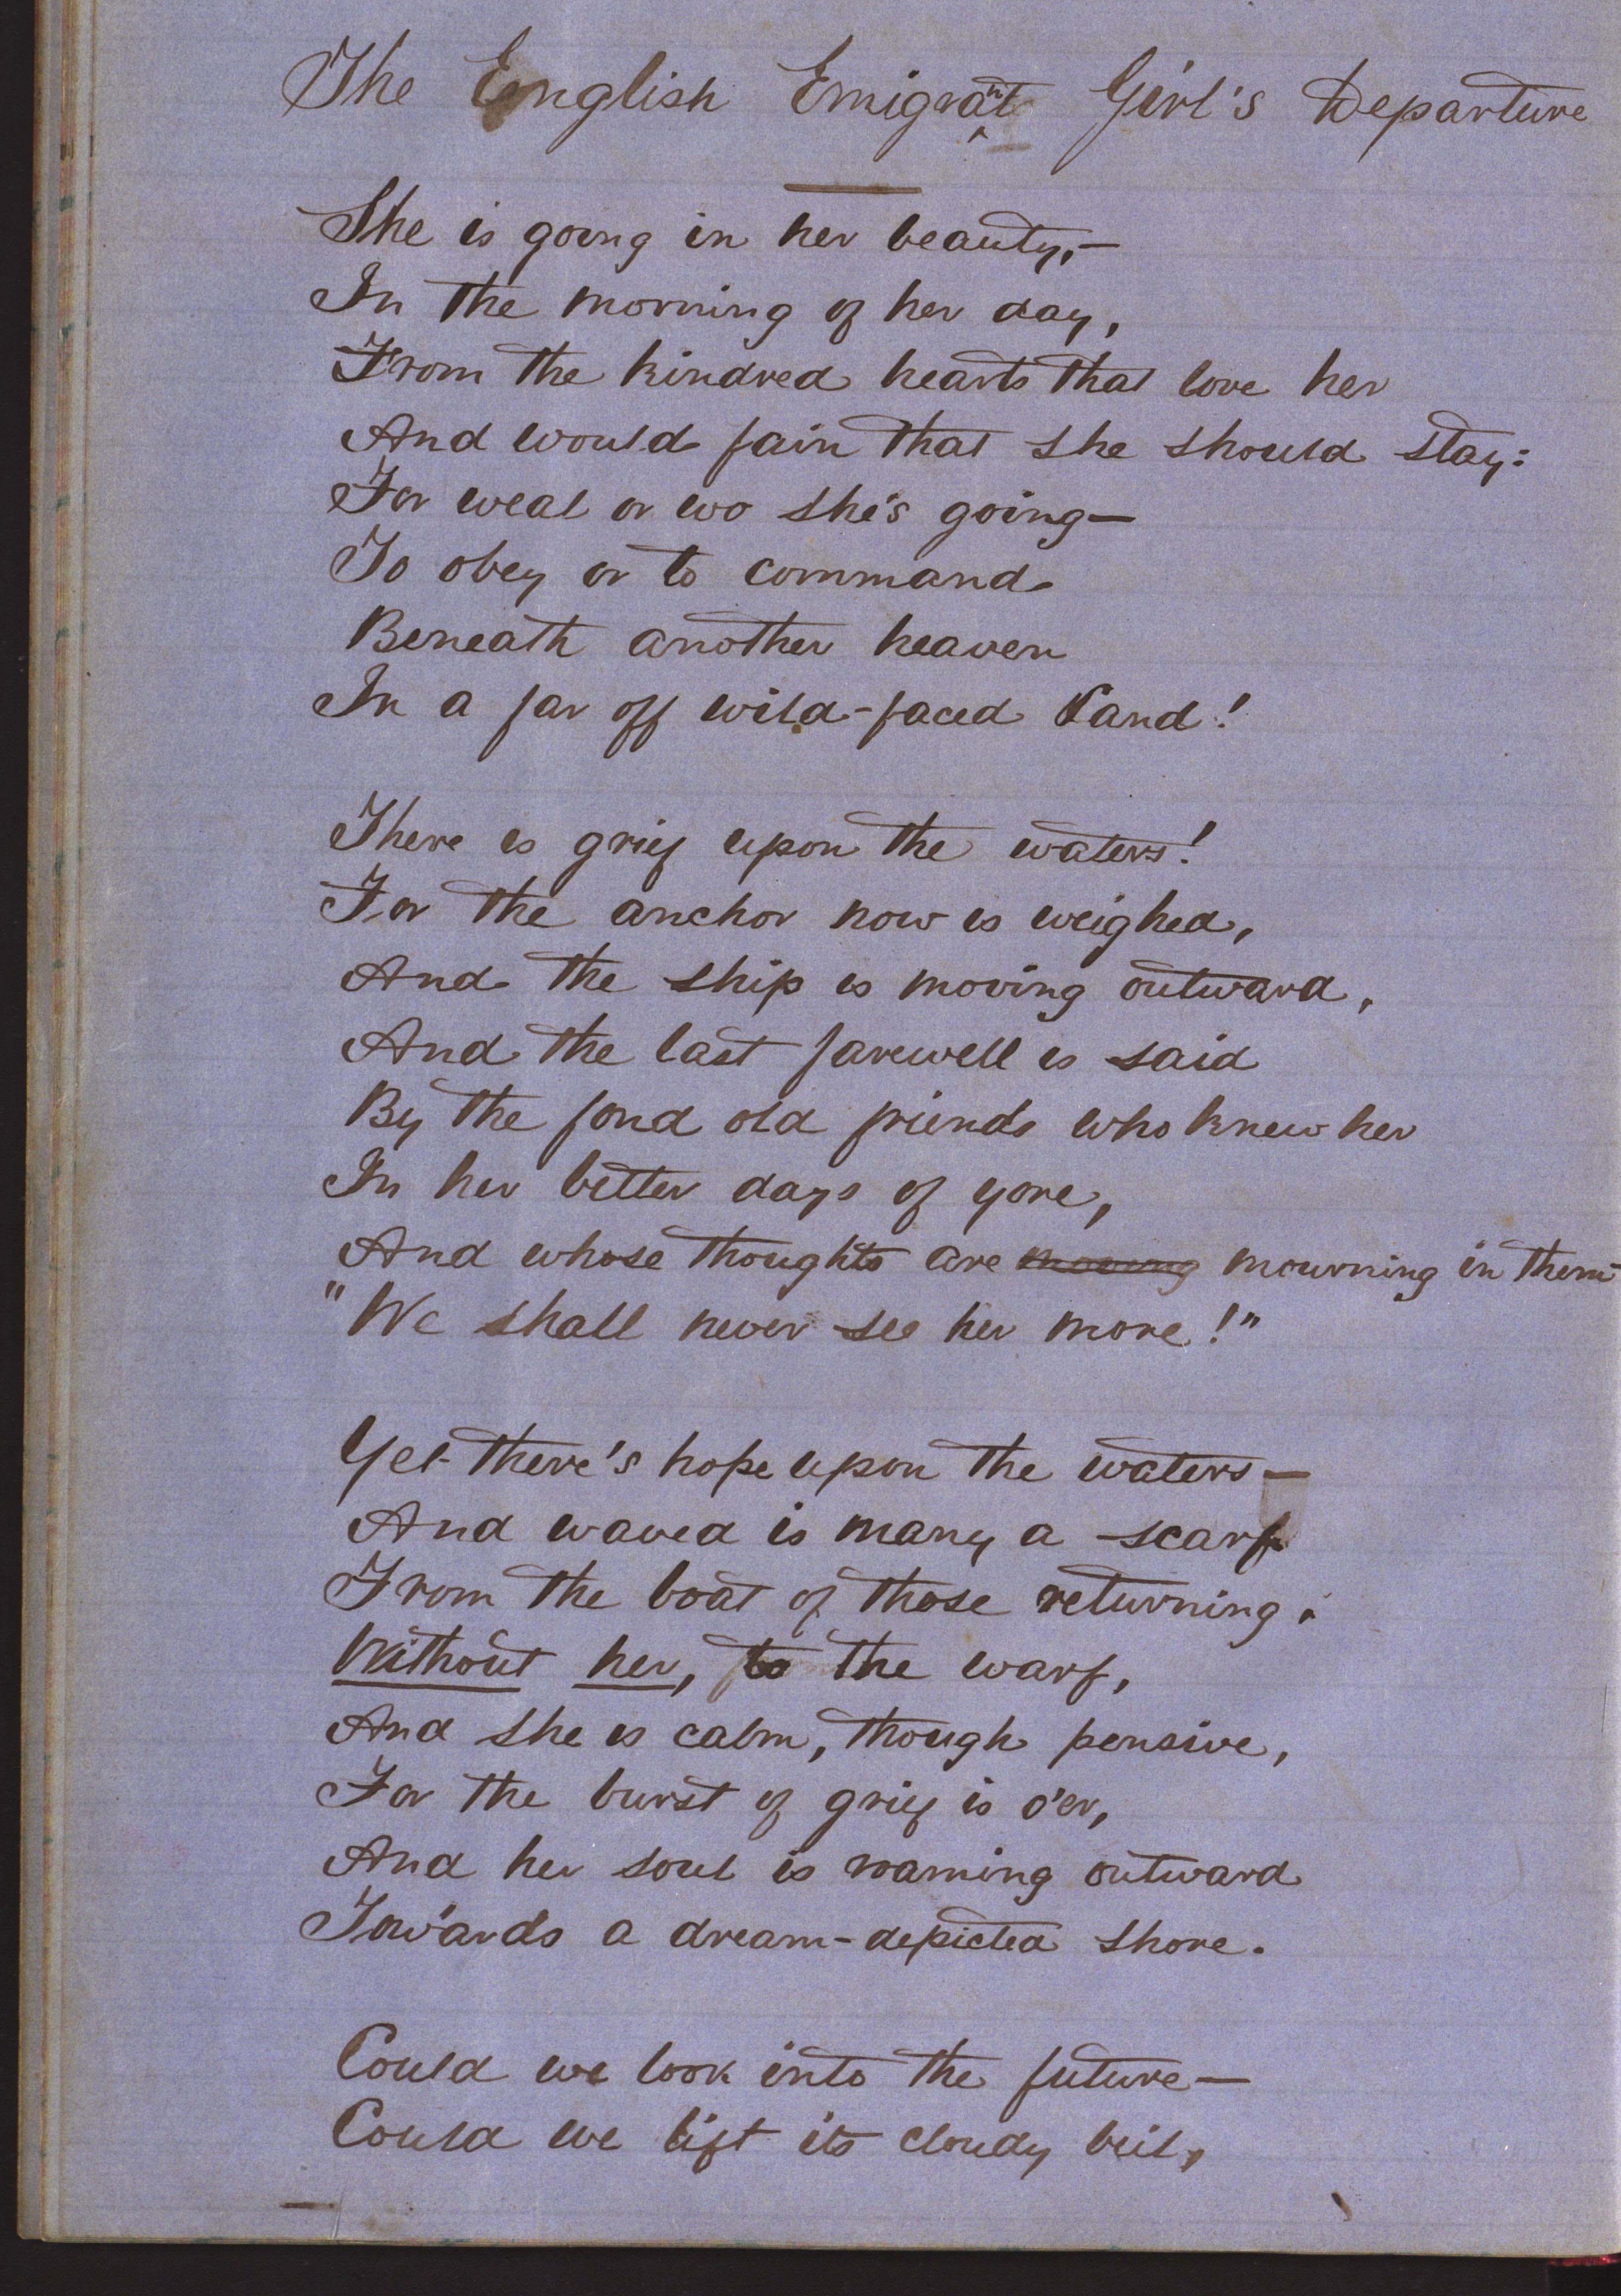 The English Emigrant Girl's Departure
She is going in her beauty,—
In the morning of her day,
From the kindred hearts that love her
And would fain that she should stay:
For weal or wo she's going—
To obey or to command
Beneath another heaven
In a far off wild-faced Land!
There is grief upon the waters!
For the anchor now is weighed,
And the ship is moving outward,
And the last farewell is said
By the fond old friends who knew her
In her better days of yore,
And whose thoughts are moving mourning in them—
"We shall never see her more!"
Yet there's hope upon the waters—
And waved is many a scarf
From the boat of those returning,
Without her, to the warf,
And she is calm, though pensive,
For the burst of grief is o'er,
And her soul is roaming outward
Towards a dream-depicted shore.
Could we look into the future—
Could we lift its cloudy veil,